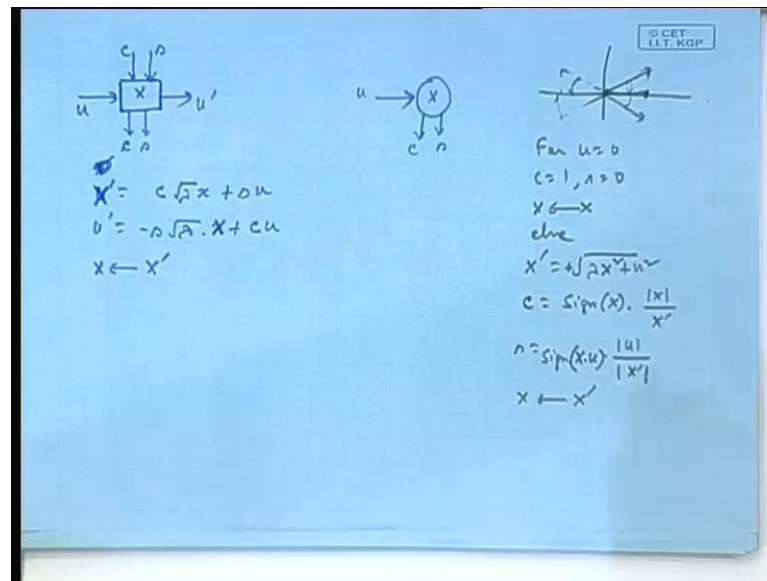 © CET
I.I.T. KGP
c s
u x u'
c s
x' = c √λ x + s u
u' = -s √λ . x + c u
x ← x'
u x
c s
For u = 0
c = 1, s = 0
x ← x
else
x' = +√λx² + u²
c = sign(x). |x| / x'
s = sign(x.u) |u| / |x'|
x ← x'